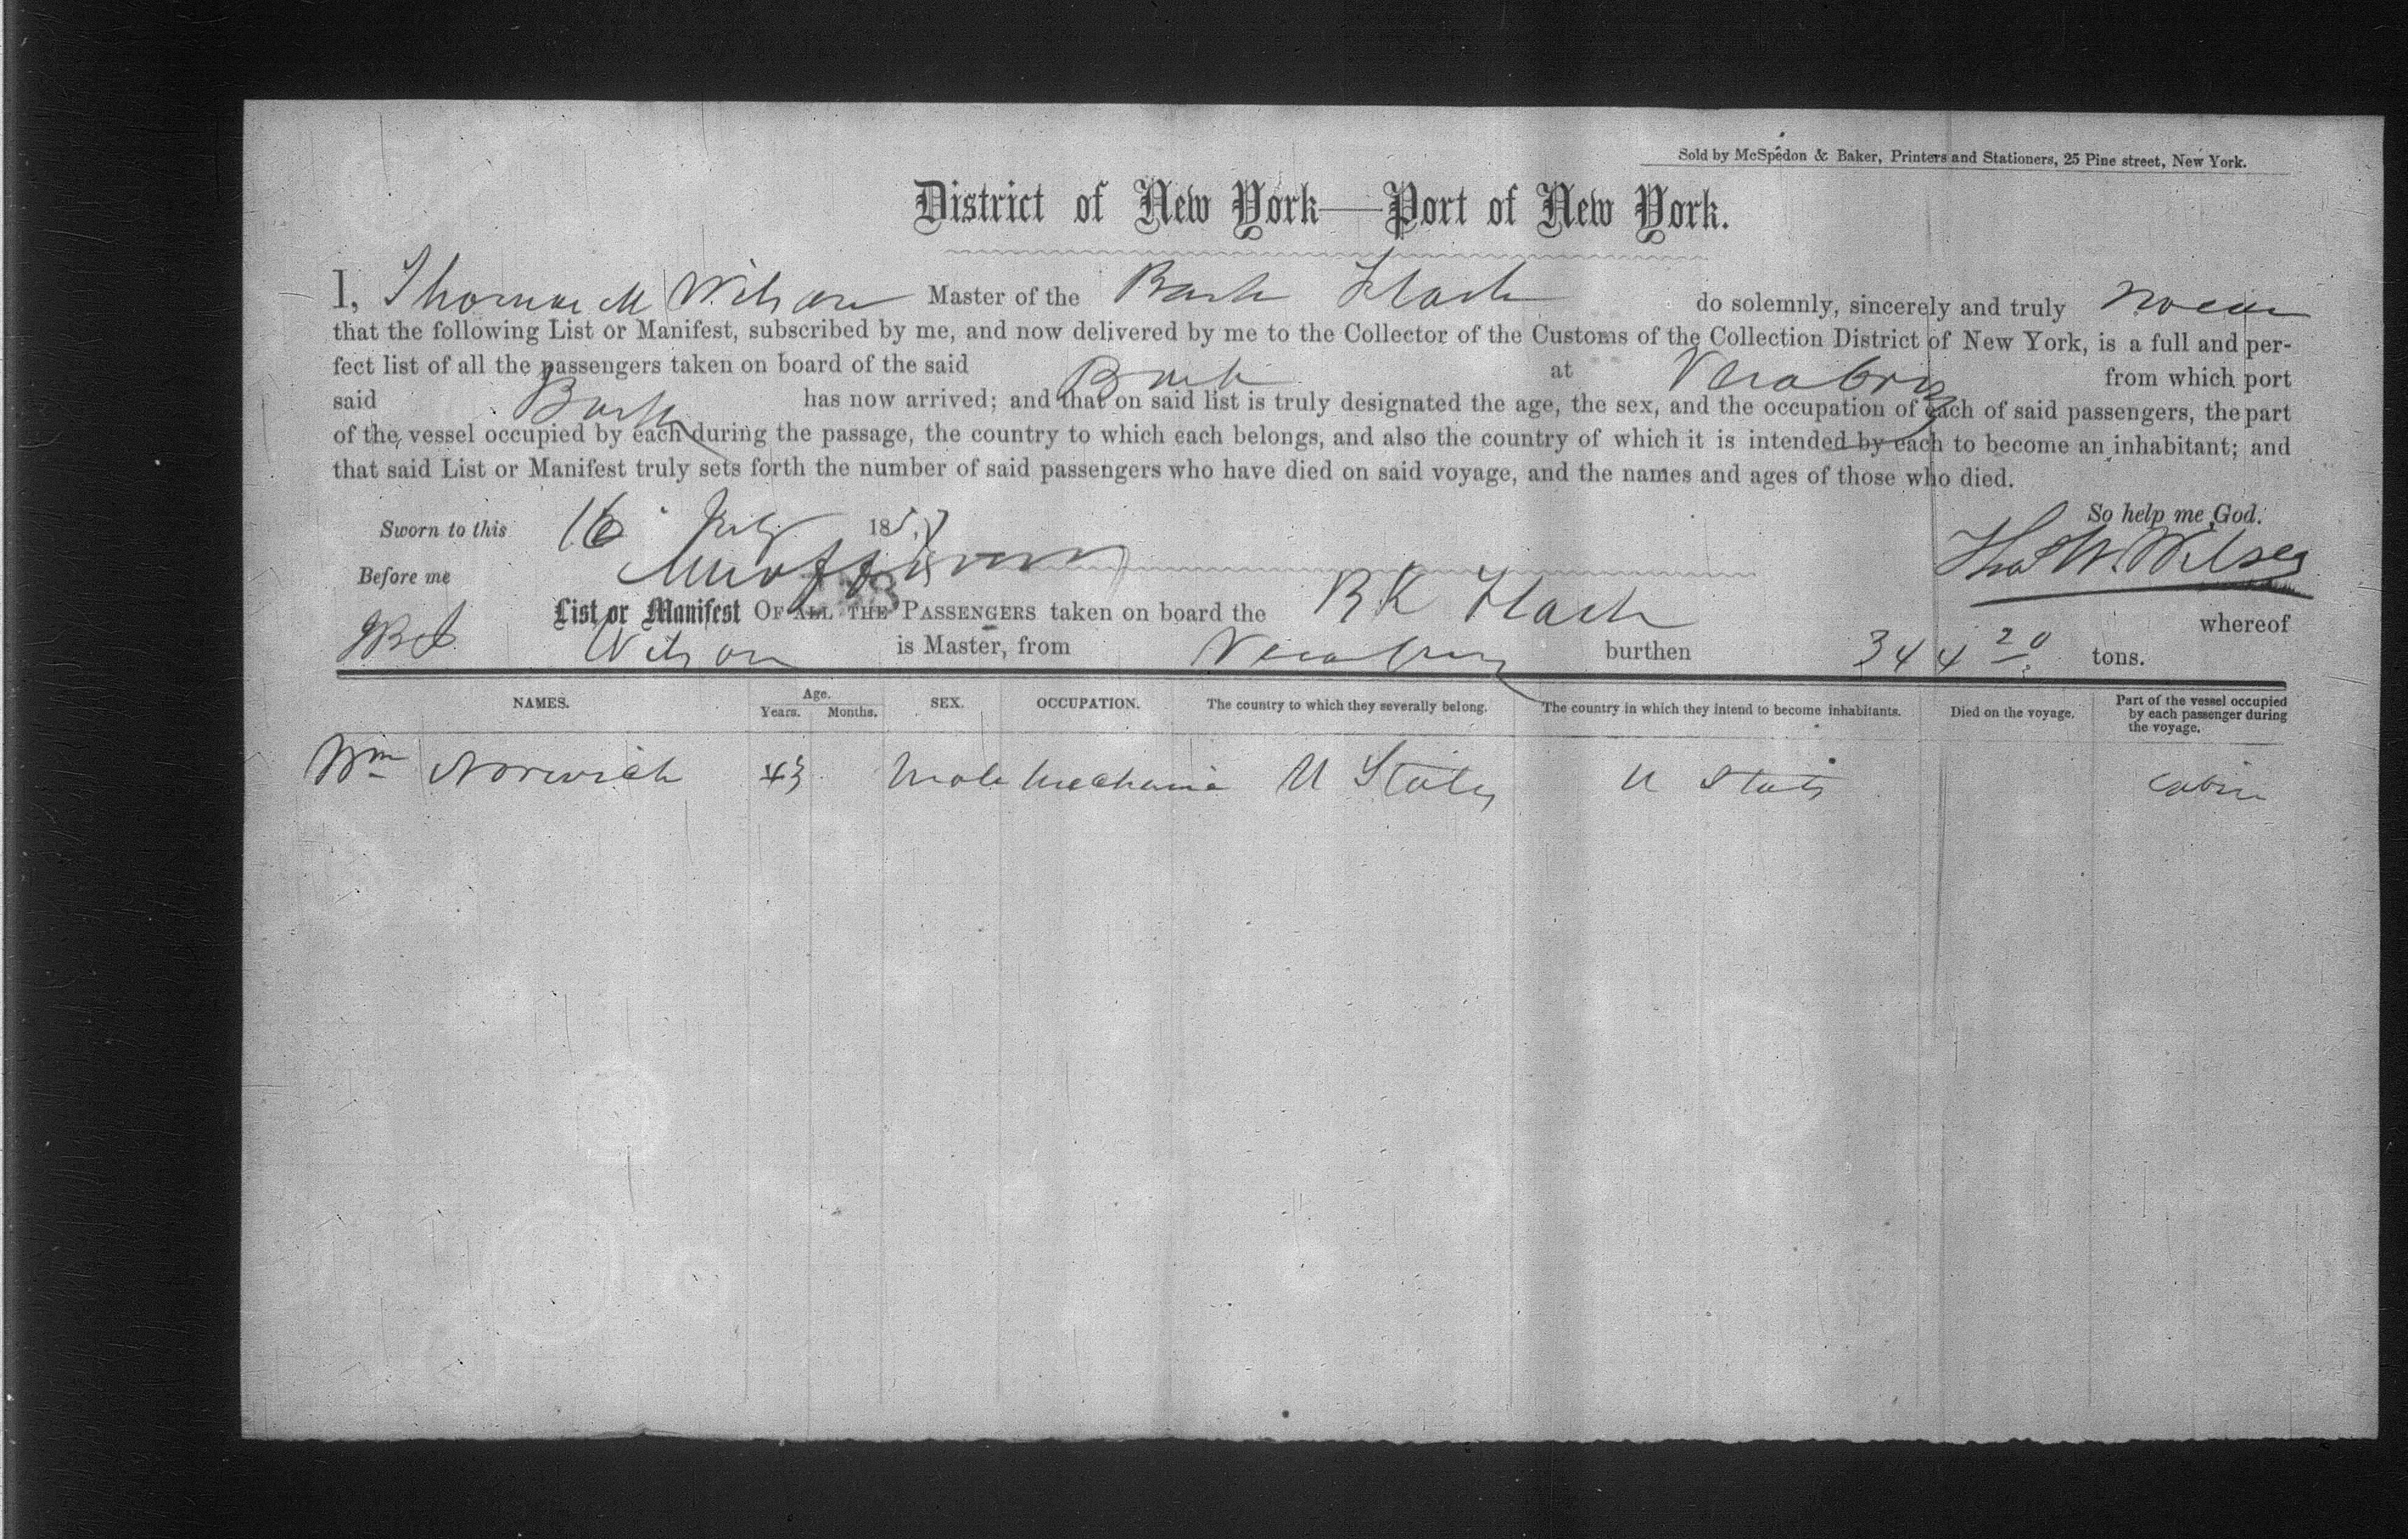 Sold by McSpedon & Baker, Printers and Stationers, 25 Pine street, New York.
District of New York—Port of New York.
I, Thomas M Wilson Master of the Bark Flash do solemnly, sincerely and truly swear
that the following List or Manifest, subscribed by me, and now delivered by me to the Collector of the Customs of the Collection District of New York, is a full and per-
fect list of all the passengers taken on board of the said Bark at Veracruz from which port
said Bark has now arrived; and that on said list is truly designated the age, the sex, and the occupation of each of said passengers, the part
of the vessel occupied by each during the passage, the country to which each belongs, and also the country of which it is intended by each to become an inhabitant; and
that said List or Manifest truly sets forth the number of said passengers who have died on said voyage, and the names and ages of those who died.
Sworn to this 16 July 1857 So help me God.
Before me Thos W. Wilson
List or Manifest OF ALL THE PASSENGERS taken on board the BK Flash whereof
Wilson is Master, from Veracruz burthen 344 20 tons.
NAMES. Age. Years. Months. SEX. OCCUPATION. The country to which they severally belong. The country in which they intend to become inhabitants. Died on the voyage. Part of the vessel occupied by each passenger during the voyage.
Wm Norwich 43 Male Mechanic U States U States Cabin